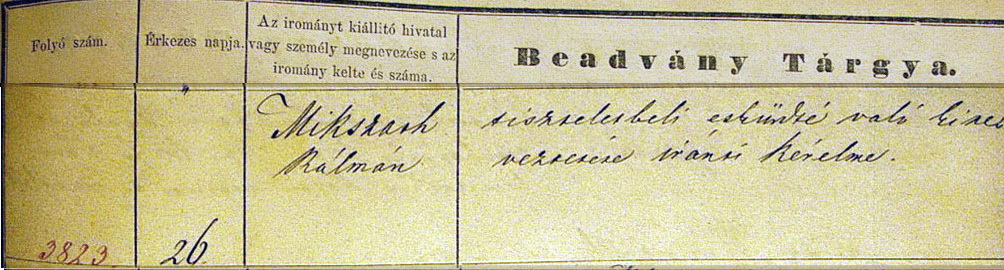 Folyó szám.
Érkezes napja.
Az irományt kiállitó hivatal
vagy személy megnevezése s az
iromány kelte és száma.
Beadvány Tárgya.
"
Mikszath
Kálmán
tiszteletbeli esküdtsé való kinev
veztetése iránti kérelme.
3823
26